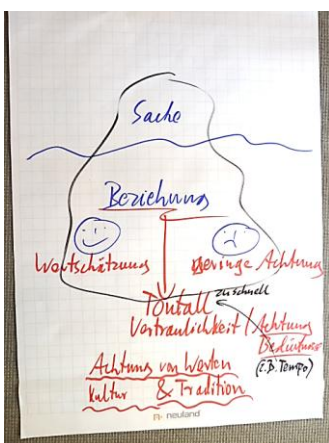 Sache
Beziehung
Wertschätzung geringe Achtung
zu schnell
Tonfall
Vertraulichkeit / Achtung
Bedürfnisse
(z.B. Tempo)
Achtung von Werten
Kultur & Tradition
neuland